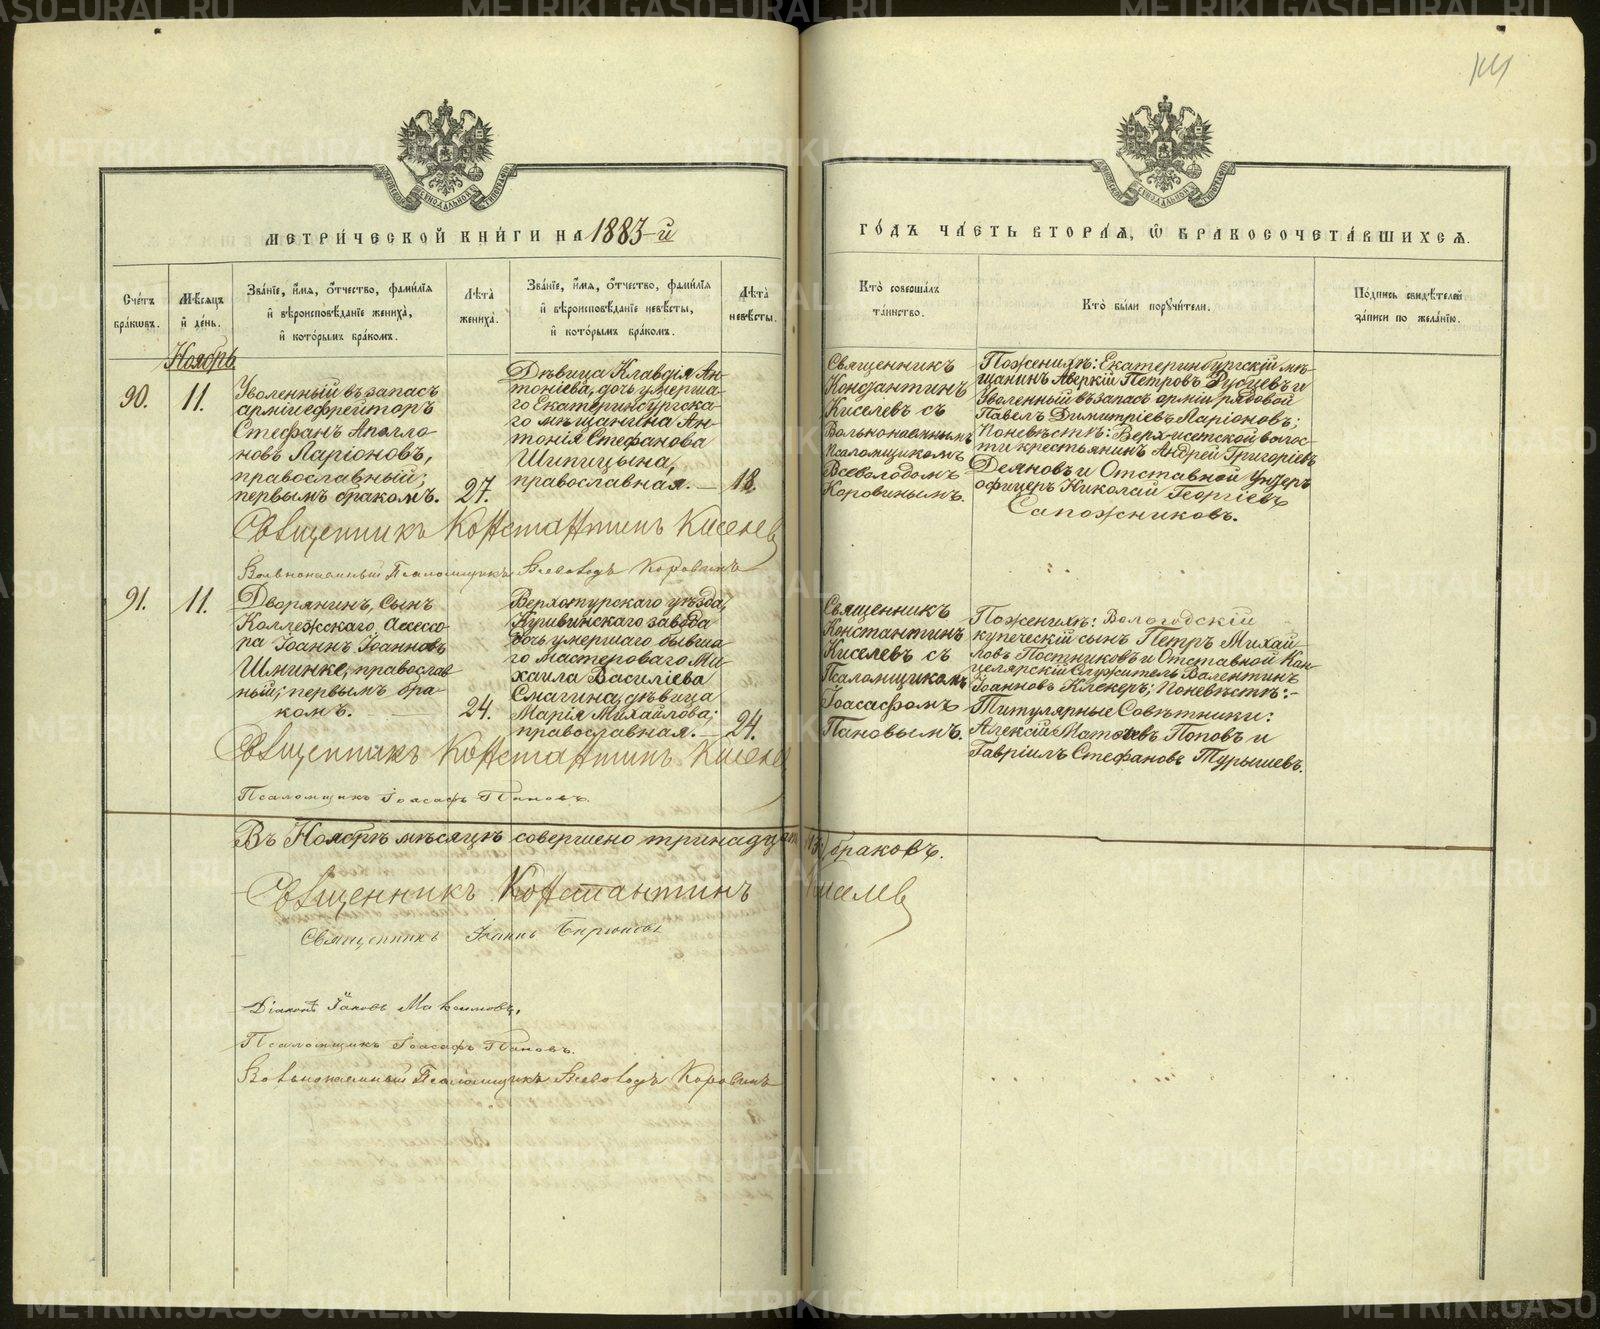 МЕТРИ́ЧЕСКОЙ КНИ́ГИ НА 1883-й
ГО́ДЪ ЧА́СТЬ ВТОРА́Я, Ѡ БРАКОСОЧЕТА́ВШИХСЯ.
Сче́тъ бра́ковъ.
Мѣ́сяцъ и҆ де́нь.
Зва́нїе, и҆́мя, ѻ҆́тчество, фами́лїя
и҆ вѣроисповѣ́данїе жениха̀,
и҆ кото́рымъ бра́комъ.
Лѣ́та̀ жениха̀.
Зва́нїе, и҆́мя, ѻ҆́тчество, фами́лїя
и҆ вѣроисповѣ́данїе невѣ́сты,
и҆ кото́рымъ бра́комъ.
Лѣ́та̀ невѣ́сты.
Кто̀ соверша́лъ
та́инство.
Кто̀ бы́ли порꙋчи́тели.
По́дпись свидѣ́телей
за́писи по жела́нїю.
Ноябрь
90.
11.
Уволенный въ запасъ
арміи ефрейторъ
Стефанъ Аполло-
новъ Ларіоновъ,
православный;
первымъ бракомъ.
27.
Дѣвица Клавдія Ан-
тоніева, дочь умерша-
го Екатеринбургска-
го мѣщанина Ан-
тонія Стефанова
Шипицына,
православная.
18.
Священникъ
Константинъ
Киселевъ съ
Вольнонаемнымъ
Псаломщикомъ
Всеволодомъ
Коровинымъ.
По женихѣ: Екатеринбургскій мѣ-
щанинъ Аверкій Петровъ и
Уволенный въ запасъ арміи рядовой
Павелъ Димитріевъ Ларіоновъ;
По невѣстѣ: Верхисетской волос-
ти крестьянинъ Андрей Григоріевъ
Деяновъ и Отставной Унтеръ
офицеръ Николай Георгіевъ
Сапожниковъ.
Священникъ Константинъ Киселев
Вольнонаемный Псаломщикъ Всеволодъ Коровинъ
91.
11.
Дворянинъ, Сынъ
Коллежскаго Ассессо-
ра Іоаннъ Іоанновъ
Шминке, православ-
ный; первымъ бра-
комъ.
24.
Верхотурскаго уѣзда,
Кушвинскаго завода
дочь умершаго бывша-
го мастероваго Ми-
хаила Василіева
Смагина, дѣвица
Марія Михайлова;
православная.
24.
Священникъ
Константинъ
Киселевъ съ
Псаломщикомъ
Іоасафомъ
Пановымъ.
По женихѣ: Вологодскій
купеческій сынъ Петръ Михай-
ловъ Постниковъ и Отставной Кан-
целярскій Служитель Валентинъ
Іоанновъ Клекеръ; По невѣстѣ:-
Титулярные Совѣтники:
Алексій Матѳіевъ Поповъ и
Гавріилъ Стефановъ Турышевъ.
Священникъ Константинъ Киселев
Псаломщикъ Іоасафъ Пановъ.
Въ Ноябрѣ мѣсяцѣ совершено тринадцать (13) браковъ.
Священникъ Константинъ Киселев
Священникъ Іоаннъ
Діаконъ Іаковъ Максимовъ.
Псаломщикъ Іоасафъ Пановъ.
Вольнонаемный Псаломщикъ Всеволодъ Коровинъ
METRIKI.GASO-URAL.RU